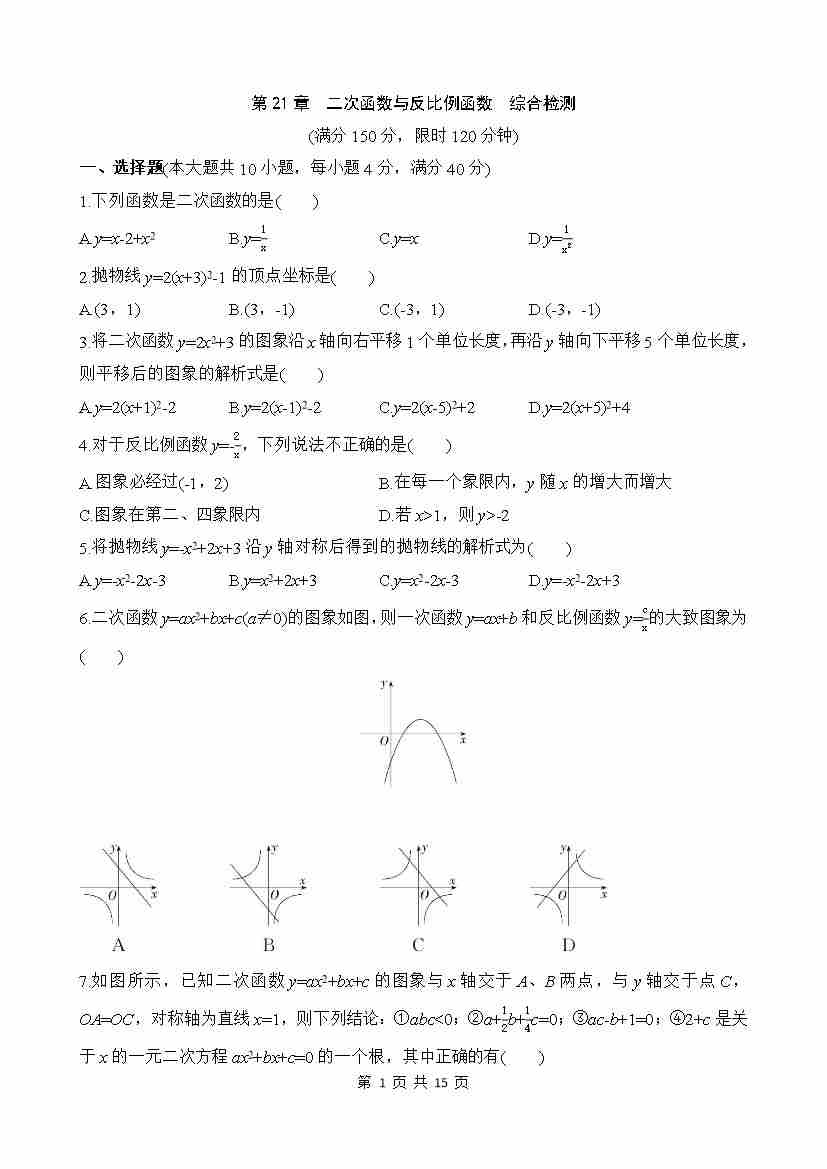 第21章 二次函数与反比例函数 综合检测
(满分150分，限时120分钟)
一、选择题(本大题共10小题，每小题4分，满分40分)
1.下列函数是二次函数的是(  )
A.y=x-2+x² B.y=1/x C.y=x D.y=1/x²
2.抛物线y=2(x+3)²-1的顶点坐标是(  )
A.(3，1) B.(3，-1) C.(-3，1) D.(-3，-1)
3.将二次函数y=2x²+3的图象沿x轴向右平移1个单位长度,再沿y轴向下平移5个单位长度，
则平移后的图象的解析式是(  )
A.y=2(x+1)²-2 B.y=2(x-1)²-2 C.y=2(x-5)²+2 D.y=2(x+5)²+4
4.对于反比例函数y=-2/x，下列说法不正确的是(  )
A.图象必经过(-1，2) B.在每一个象限内，y随x的增大而增大
C.图象在第二、四象限内 D.若x>1，则y>-2
5.将抛物线y=-x²+2x+3沿y轴对称后得到的抛物线的解析式为(  )
A.y=-x²-2x-3 B.y=x²+2x+3 C.y=x²-2x-3 D.y=-x²-2x+3
6.二次函数y=ax²+bx+c(a≠0)的图象如图,则一次函数y=ax+b和反比例函数y=c/x的大致图象为
(  )
y
O x
y y y y
O x O x O x O x
A B C D
7.如图所示，已知二次函数y=ax²+bx+c的图象与x轴交于A、B两点，与y轴交于点C，
OA=OC，对称轴为直线x=1，则下列结论：①abc<0；②a+1/2b+1/4c=0；③ac-b+1=0；④2+c是关
于x的一元二次方程ax²+bx+c=0的一个根，其中正确的有(  )
第 1 页 共 15 页